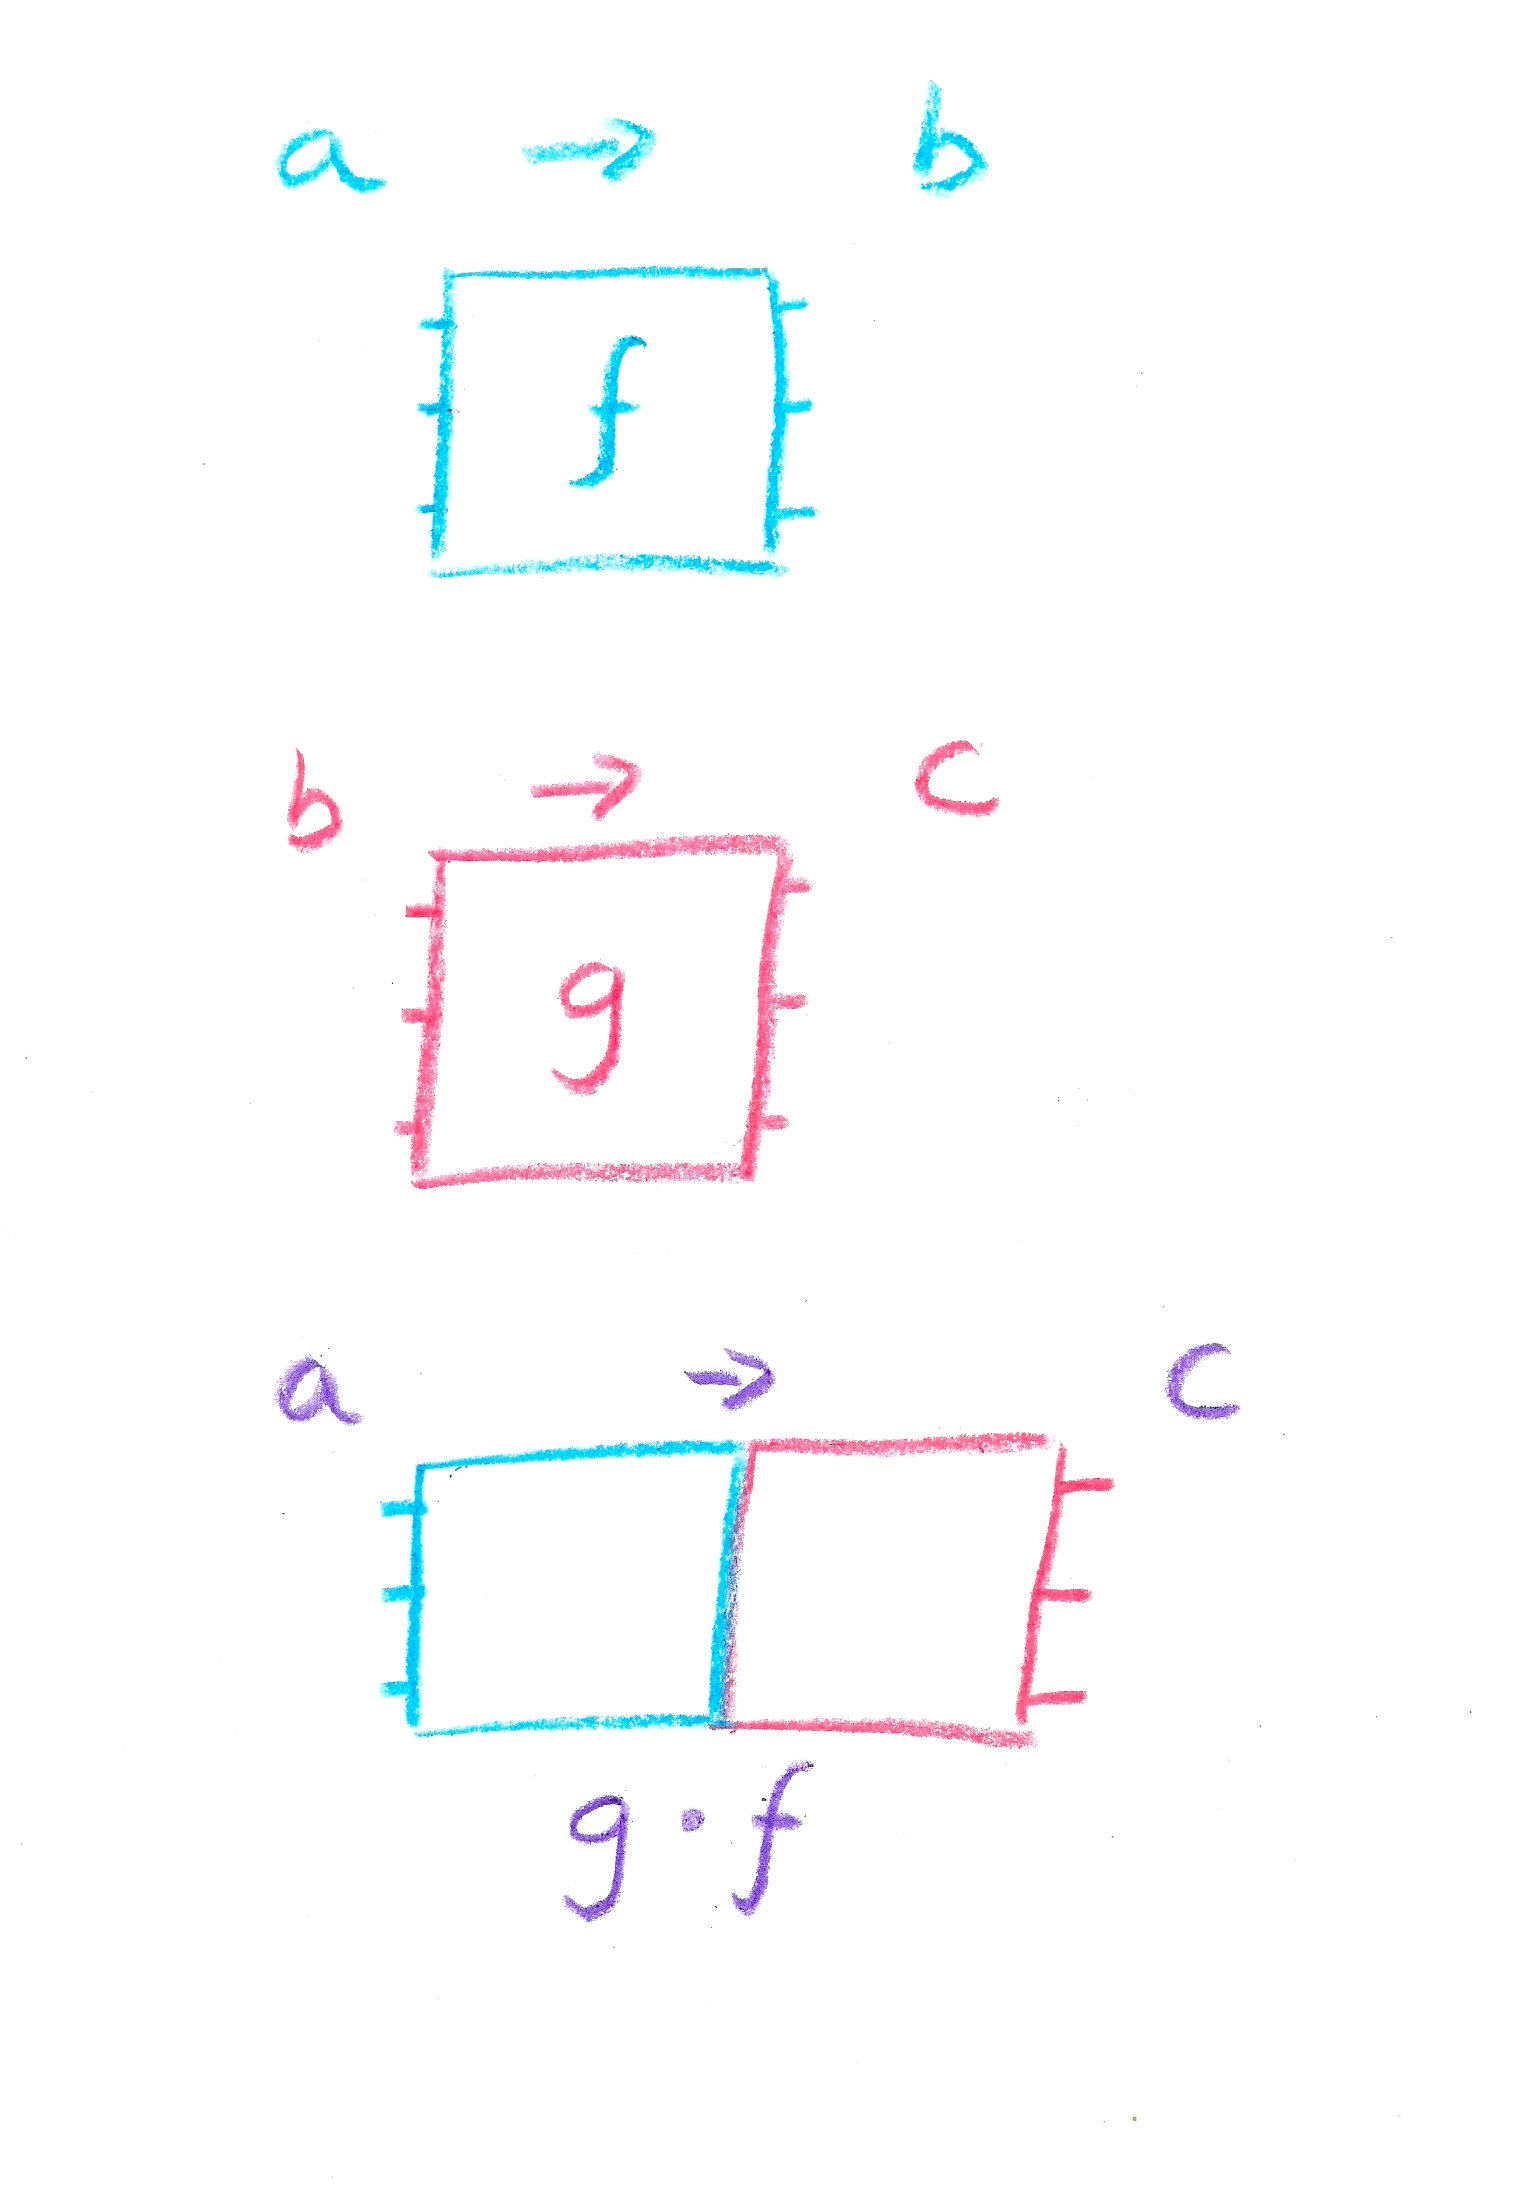 a → b
f
b → c
g
a → c
g · f